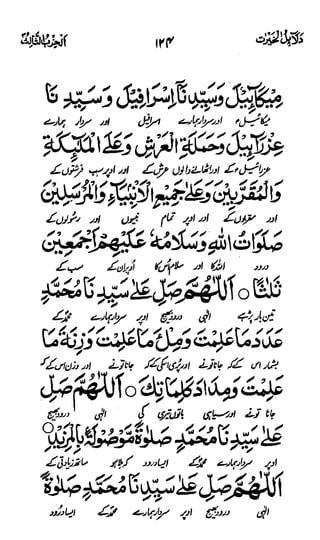 دلائل الخیرات ۱۲۴ الحزب الثالث
مِيْكَآئِيْلَ وَسَيِّدِنَآ اِسْرَافِيْلَ وَسَيِّدِ نَا
میکائیل کے اور سردار ہمارے اسرافیل اور سردار ہمارے
عِزْرَآئِيْلَ وَحَمَلَةِ الْعَرْشِ وَعَلَى الْمَلٰٓئِكَةِ
عزرائیل کے اور اٹھانے والوں عرش کے اور اوپر سب فرشتوں کے
وَالْمُقَرَّبِيْنَ وَعَلٰى جَمِيْعِ الْاَنْبِيَآءِ وَالْمُرْسَلِيْنَ
اور مقربوں کے اور اوپر تمام نبیوں اور رسولوں کے
صَلَوَاتُ اللهِ وَسَلَامُهٗ عَلَيْهِمْ اَجْمَعِيْنَ
درود اللہ کا اور سلام اس کا اوپر ان کے سب کے
ثَلٰثًا ○ اَللّٰهُمَّ صَلِّ عَلٰى سَيِّدِ نَا مُحَمَّدٍ
تین بار پڑہے الٰہی درود بھیج اوپر سردار ہمارے محمد کے
عَدَدَ مَا عَلِمْتَ وَمِلْءَ مَا عَلِمْتَ وَزِنَةَ مَا
بشمار اس کے کہ جانا تونے اور پری اسکی کے کہ جانا تونے اور وزن اس کے کہ
عَلِمْتَ وَمِدَادَ كَلِمَاتِكَ ○ اَللّٰهُمَّ صَلِّ
جانا تونے اور سیاہی باتوں تیری کی الٰہی درود بھیج
عَلٰى سَيِّدِنَا مُحَمَّدٍ صَلٰوةً مَّوْصُوْلَةً بِالْمَزِيْدِ ○
اوپر سردار ہمارے محمد کے ایسا درود کہ ملا ہو ساتھ زیادتی کے
اَللّٰهُمَّ صَلِّ عَلٰى سَيِّدِنَا مُحَمَّدٍ صَلٰوةً
الٰہی درود بھیج اوپر سردار ہمارے محمد کے ایسا درود